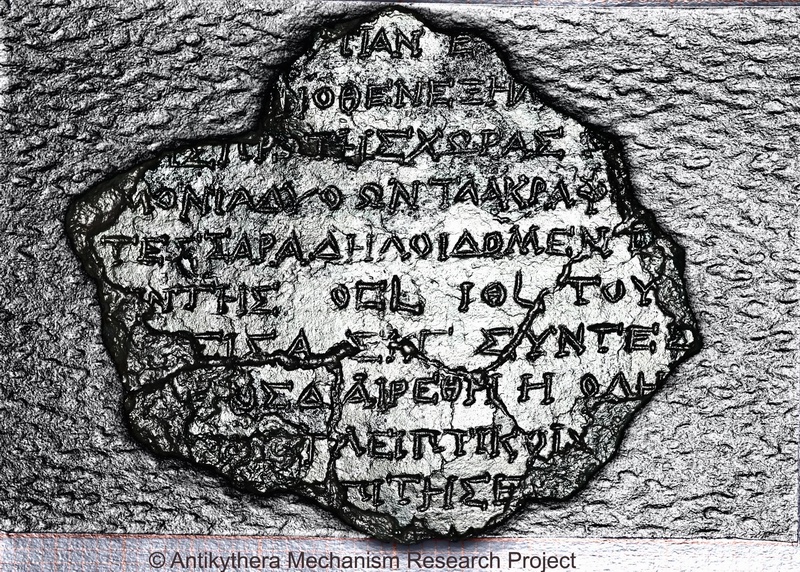 ΠΑΝ Ε
ΝΟΘΕΝΕΞΗΛ
ΤΗΣΧΩΡΑΣ
ΜΟΝΙΑΔΥΟΩΝΤΑΑΚΡΑΨ
ΤΕΣΣΑΡΑΔΗΛΟΙΔΟΜΕΝ
ΝΤΗΣ ΟϚL ΙΘL ΤΟΥ
ΕΙΣΑ ΣΚΓ ΣΥΝΤΕΣ
ΟΥΣΔΙΑΙΡΕΘΗ Η ΟΛΗ
ΕΓΛΕΙΠΤΙΚΟΙΧ
ΠΙΤΗΣΕ
© Antikythera Mechanism Research Project